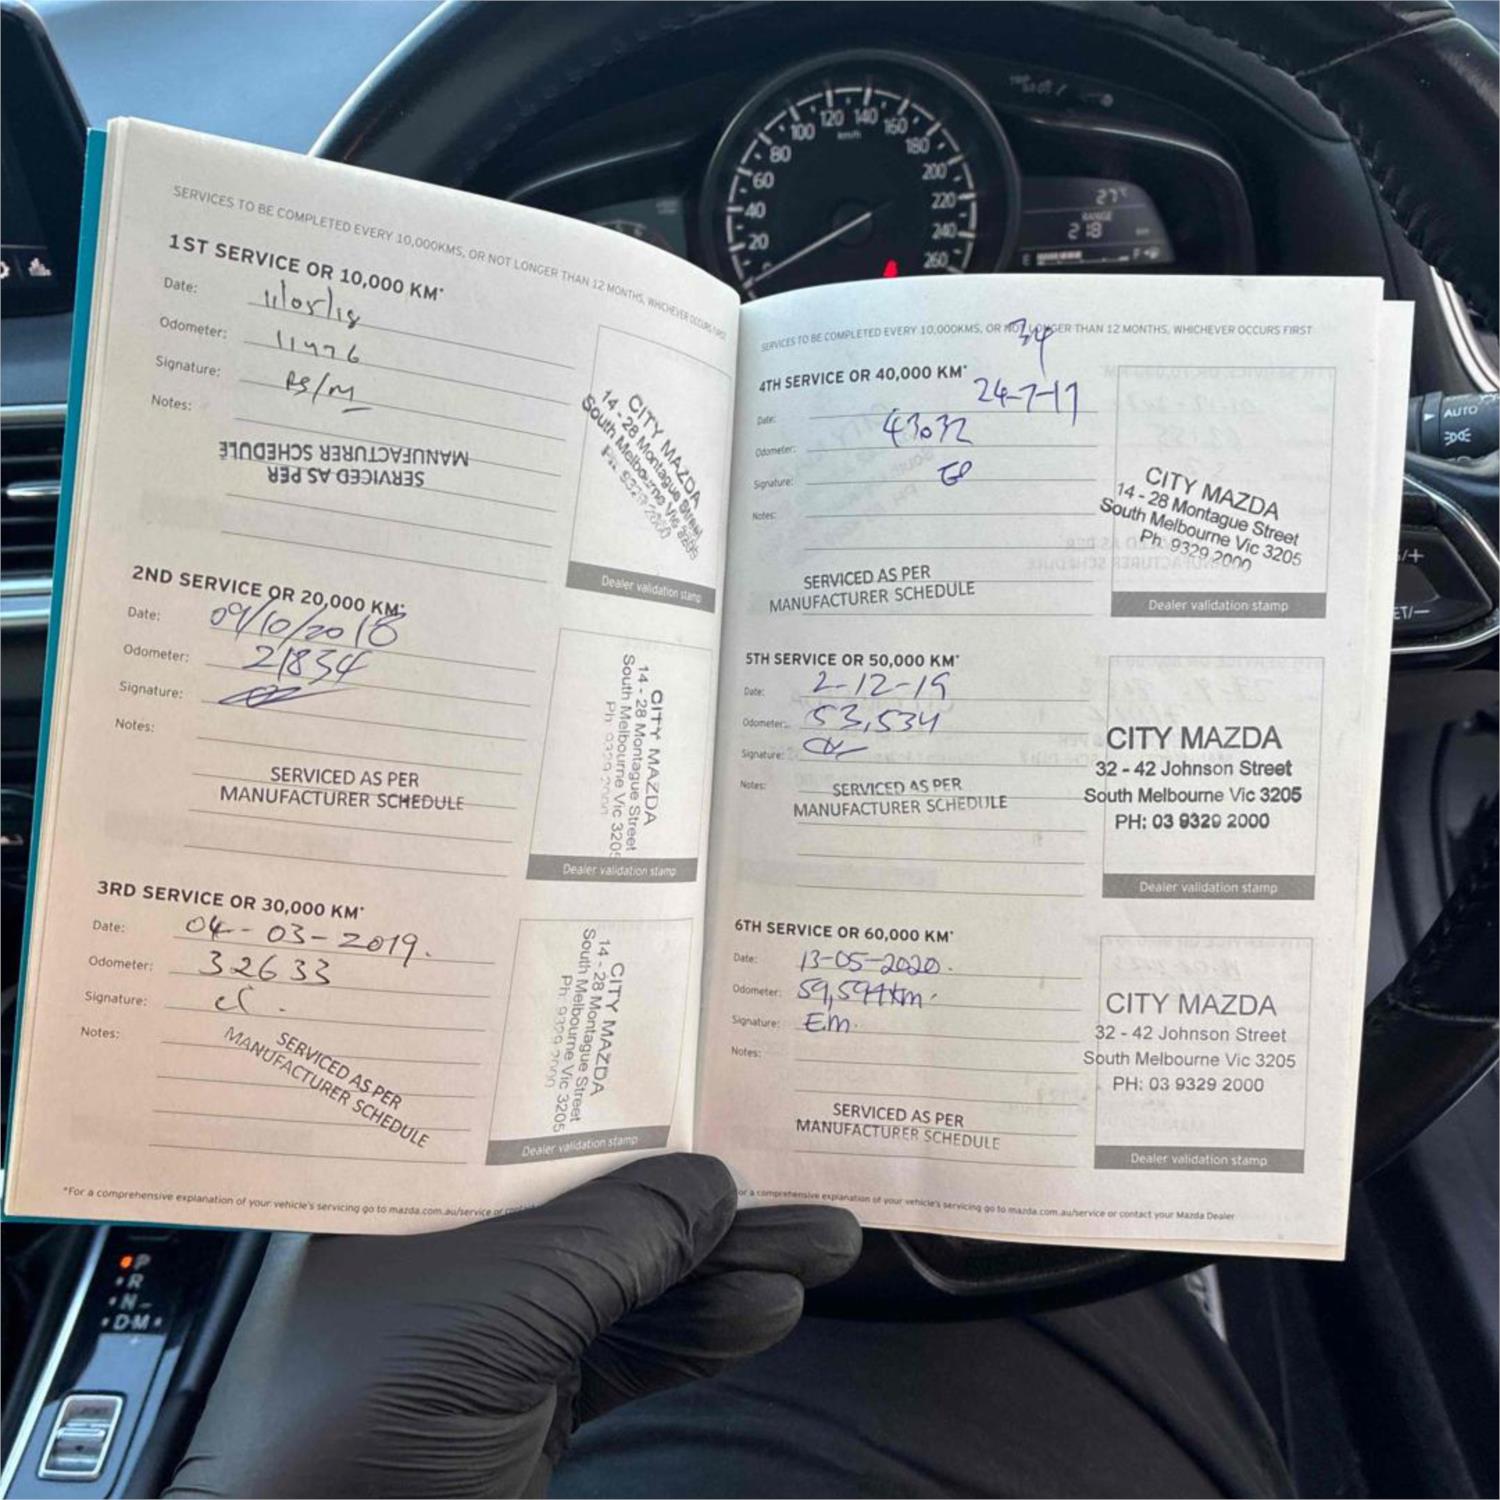 SERVICES TO BE COMPLETED EVERY 10,000KMS, OR NOT LONGER THAN 12 MONTHS, WHICHEVER OCCURS FIRST
1ST SERVICE OR 10,000 KM*
Date: 11/05/18
Odometer: 11476
Signature:
Notes:
SERVICED AS PER
MANUFACTURER SCHEDULE
CITY MAZDA
14 - 28 Montague Street
South Melbourne Vic 3205
Ph: 9329 2000
Dealer validation stamp
2ND SERVICE OR 20,000 KM*
Date: 09/10/2018
Odometer: 21834
Signature:
Notes:
SERVICED AS PER
MANUFACTURER SCHEDULE
CITY MAZDA
14 - 28 Montague Street
South Melbourne Vic 3205
Ph: 9329 2000
Dealer validation stamp
3RD SERVICE OR 30,000 KM*
Date: 04-03-2019.
Odometer: 32633
Signature:
Notes:
SERVICED AS PER
MANUFACTURER SCHEDULE
CITY MAZDA
14 - 28 Montague Street
South Melbourne Vic 3205
Ph: 9329 2000
Dealer validation stamp
*For a comprehensive explanation of your vehicle's servicing go to mazda.com.au/service or
SERVICES TO BE COMPLETED EVERY 10,000KMS, OR NOT LONGER THAN 12 MONTHS, WHICHEVER OCCURS FIRST
4TH SERVICE OR 40,000 KM*
Date: 24-7-19
Odometer: 43032
Signature:
Notes:
SERVICED AS PER
MANUFACTURER SCHEDULE
CITY MAZDA
14 - 28 Montague Street
South Melbourne Vic 3205
Ph: 9329 2000
Dealer validation stamp
5TH SERVICE OR 50,000 KM*
Date: 2-12-19
Odometer: 53,534
Signature:
Notes:
SERVICED AS PER
MANUFACTURER SCHEDULE
CITY MAZDA
32 - 42 Johnson Street
South Melbourne Vic 3205
PH: 03 9329 2000
Dealer validation stamp
6TH SERVICE OR 60,000 KM*
Date: 13-05-2020.
Odometer: 59,594km.
Signature: E.m.
Notes:
SERVICED AS PER
MANUFACTURER SCHEDULE
CITY MAZDA
32 - 42 Johnson Street
South Melbourne Vic 3205
PH: 03 9329 2000
Dealer validation stamp
or a comprehensive explanation of your vehicle's servicing go to mazda.com.au/service or contact your Mazda Dealer
20 40 60 80 100 120 140 160 180 200 220 240 260
km/h
27°C
RANGE
218 km
E F
AUTO
P
R
N
D M